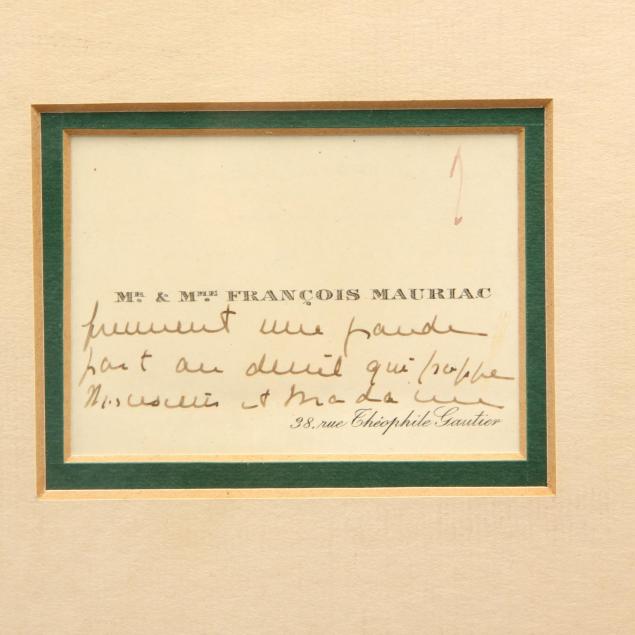 MR. & MME. FRANÇOIS MAURIAC
prennent une grande
part au deuil qui frappe
Monsieur et Madame
38, rue Théophile Gautier